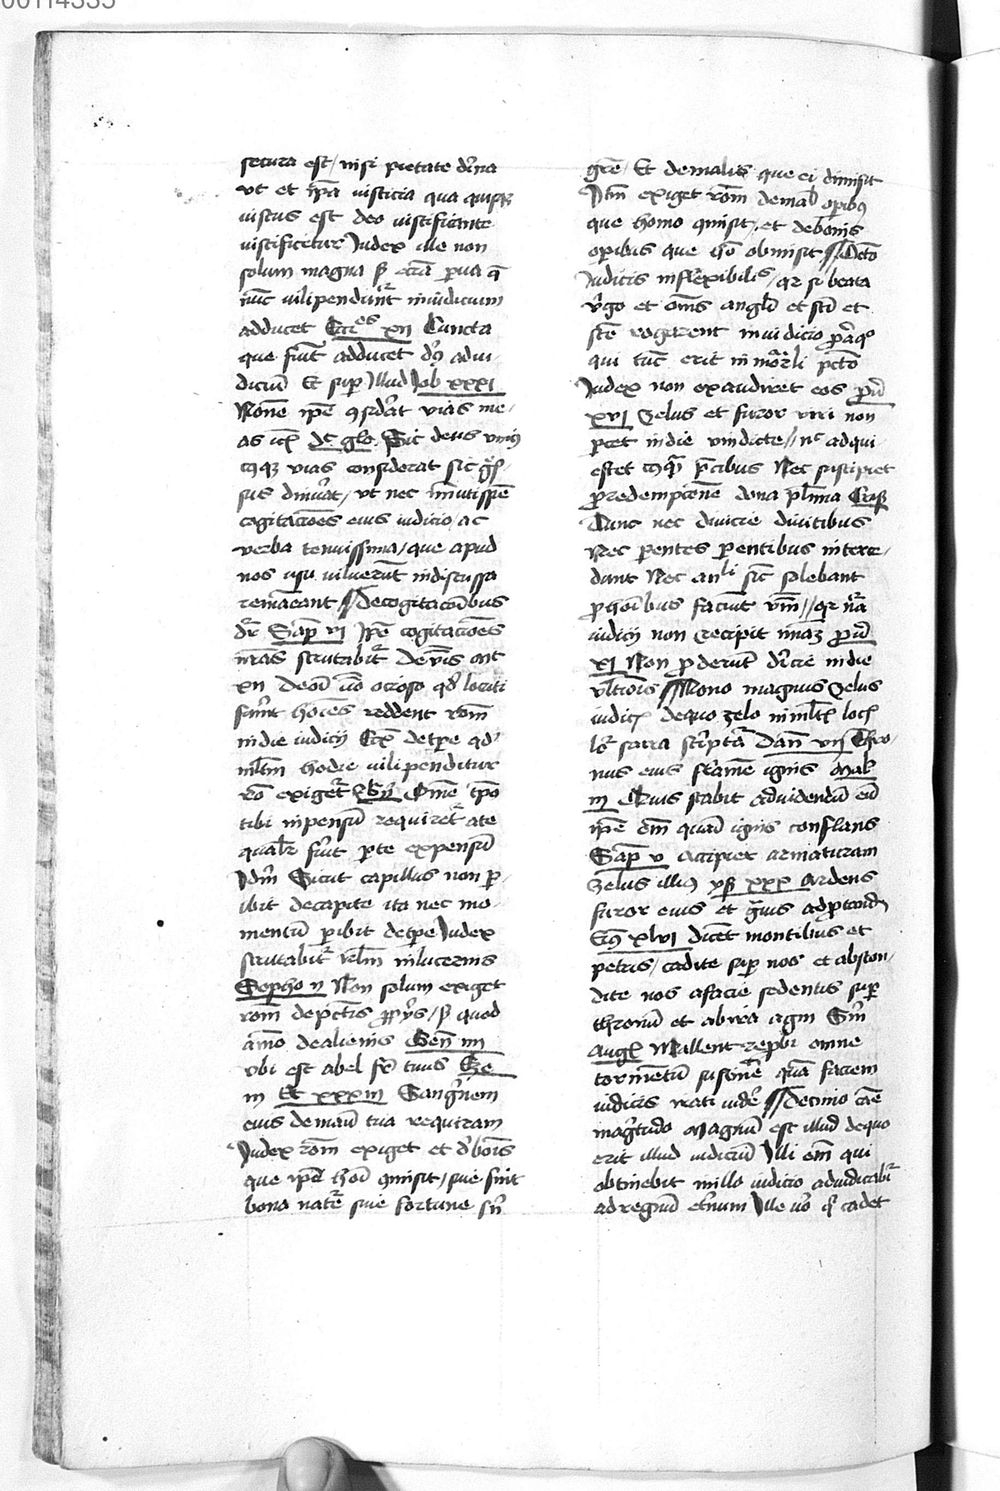 00114335
secura est / nisi pietate diuina
vt et ip̄a iusticia qua quisque
iustus est deo iustificante
iustificetur Iudex ille non
solum magna s̄ eciā parua q̄
nūc vilipendunt̄ in iudicium
adducet Eccēs xii Cuncta
que fiūt adducet dn̄s in iu-
diciū Et sup illud Iob xxxi
Nonne ip̄e ꝯsiderat vias me-
as Sic deus vniuſ
cuiusq; vias considerat sic
sus dinu̅at / vt nec minutissīe
cogitaciōes eius iudicio ac
verba tenuissima / que apud
nos vsu viluerūt indiscussa
remaneant De cogitacōibus
dr̄ Sap̄ vi Ip̄e cogitacōes
vr̄as scrutabit̄ De v̄bis mt
xii De oī v̄o ocioso qd locuti
fuerint hoīes reddent rōm
in die iudicij de tp̄e qd
ml̄tm hodie vilipenditur
rō exiget̄ Omē tp̄s
tibi inpensū requiret̄ a te
qualr̄ fu̅it p te expensū
Idm Sicut capillus non p-
ibit de capite ita nec mo-
mentū peribit de tp̄e Iudex
scrutabit̄ irl̄m in lucernis
Sopho ii Non solum exiget
rōm de pctīs ppijs / s̄ quod
amo de alienis Gen̄ iiii
vbi est abel fr̄ tuus Eze
iii Et xxxiii Sanguīem
eius de manu tua requiram
Iudex rōm exiget et d̄ bonis
que ip̄e hoī cōmisit / siue sint
bona natē siue fortune siue
grē / Et de malis que ei dimisit
Itm exiget rōm de mal opibus
que homo cōmisit / et de bonis
opibus que hō obmisit Octo
Iudicis inflexibilis / qr si beata
v̄go et om̄s angli et sci et
scē rogarent in iudicio p aliquo
qui tūc erit in mortali pctō
Iudex non exaudiret eos pu̅
xvi Zelus et furor viri non
pcet in die vindicte / nc adqui-
escet cuiusq̄ p̄cibus Nec suscipiet
p redempcōne dona pl̄ima
Tunc nec diuicie diuitibus
Nec parentes parentibus interce-
dunt Nec an̄li sic solebant
p hoībus faciunt
iudicij non recipit pu̅
xi Non pderūt diuicie in die
vltionis Nono magnus zelus
iudicis de quo zelo in ml̄tis locis
loq̄ sacra scriptā Dan̄ vii Thro-
nus eius flamme ignis Mal
iii Quis stabit ad videndū eū
ip̄e em̄ quasi ignis conflans
Sap̄ v Accipiet armaturam
zelus illius ys xxx Ardens
furor eius et g̃uis ad portandū
xlvi dicēt montibus et
petris / cadite sup nos et abscon-
dite nos a facie sedentis sup
thronū et ab ira agni
Aug Mallent reprobi omne
tormētū sustinē quā faciem
iudicis irati vidē Decimo
magitudo Magnū est illud de quo
erit illud iudiciū Illi em̄ qui
obtinebit in illo iudicio adiudicabit̄
ad regnū et̄num Ille vō q cadet